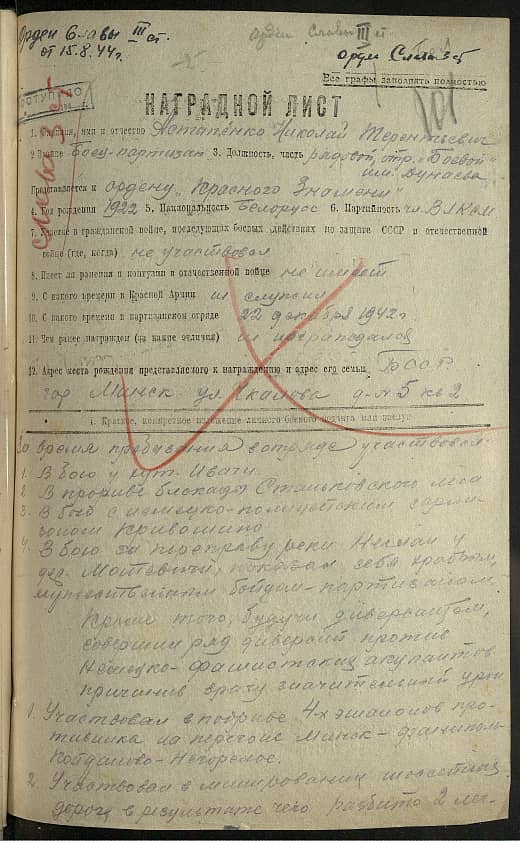 Орден Славы III ст.
от 15.8.44 г.
Орден Славы III ст
Орден Славы 3 ст
Все графы заполнять полностью
НАГРАДНОЙ ЛИСТ
1. Фамилия, имя и отчество Астапенко Николай Терентьевич
2. Звание Боец-партизан 3. Должность, часть рядовой, отр. „Боевой"
им. Дунаева
Представляется к ордену „Красного Знамени"
Слава 3 ст
4. Год рождения 1922 5. Национальность Белорусс 6. Партийность чл. ВЛКСМ
7. Участие в гражданской войне, последующих боевых действиях по защите СССР и отечественной
войне (где, когда) не участвовал
8. Имеет ли ранения и контузии в отечественной войне не имеет
9. С какого времени в Красной Армии не служил
10. С какого времени в партизанском отряде 22 декабря 1942 г.
11. Чем ранее награжден (за какие отличия) не награждался
12. Адрес места рождения представляемого к награждению и адрес его семьи БССР
гор Минск ул. Чкалова д-№5 кв 2
1. Краткое, конкретное изложение личного боевого подвига или заслуг
За время пребывания в отряде участвовал:
1. В бою у
2. В прорыве блокады Станьковского леса
3. В бою с немецко-полицейским гарни-
зоном Кривошино
4. В бою за переправу реки Неман у
дер. показал себя храбрым,
мужественным бойцом-партизаном.
Кроме того, будучи диверсантом,
совершил ряд диверсий против
Немецко-фашистских акупантов
причинив врагу значительный урон
1. Участвовал в подрыве 4х эшалонов про-
тивника на перегоне Минск-
Койданово-Негорелое.
2. Участвовал в минировании шоссейных
дорог, в результате чего разбито 2 лег-